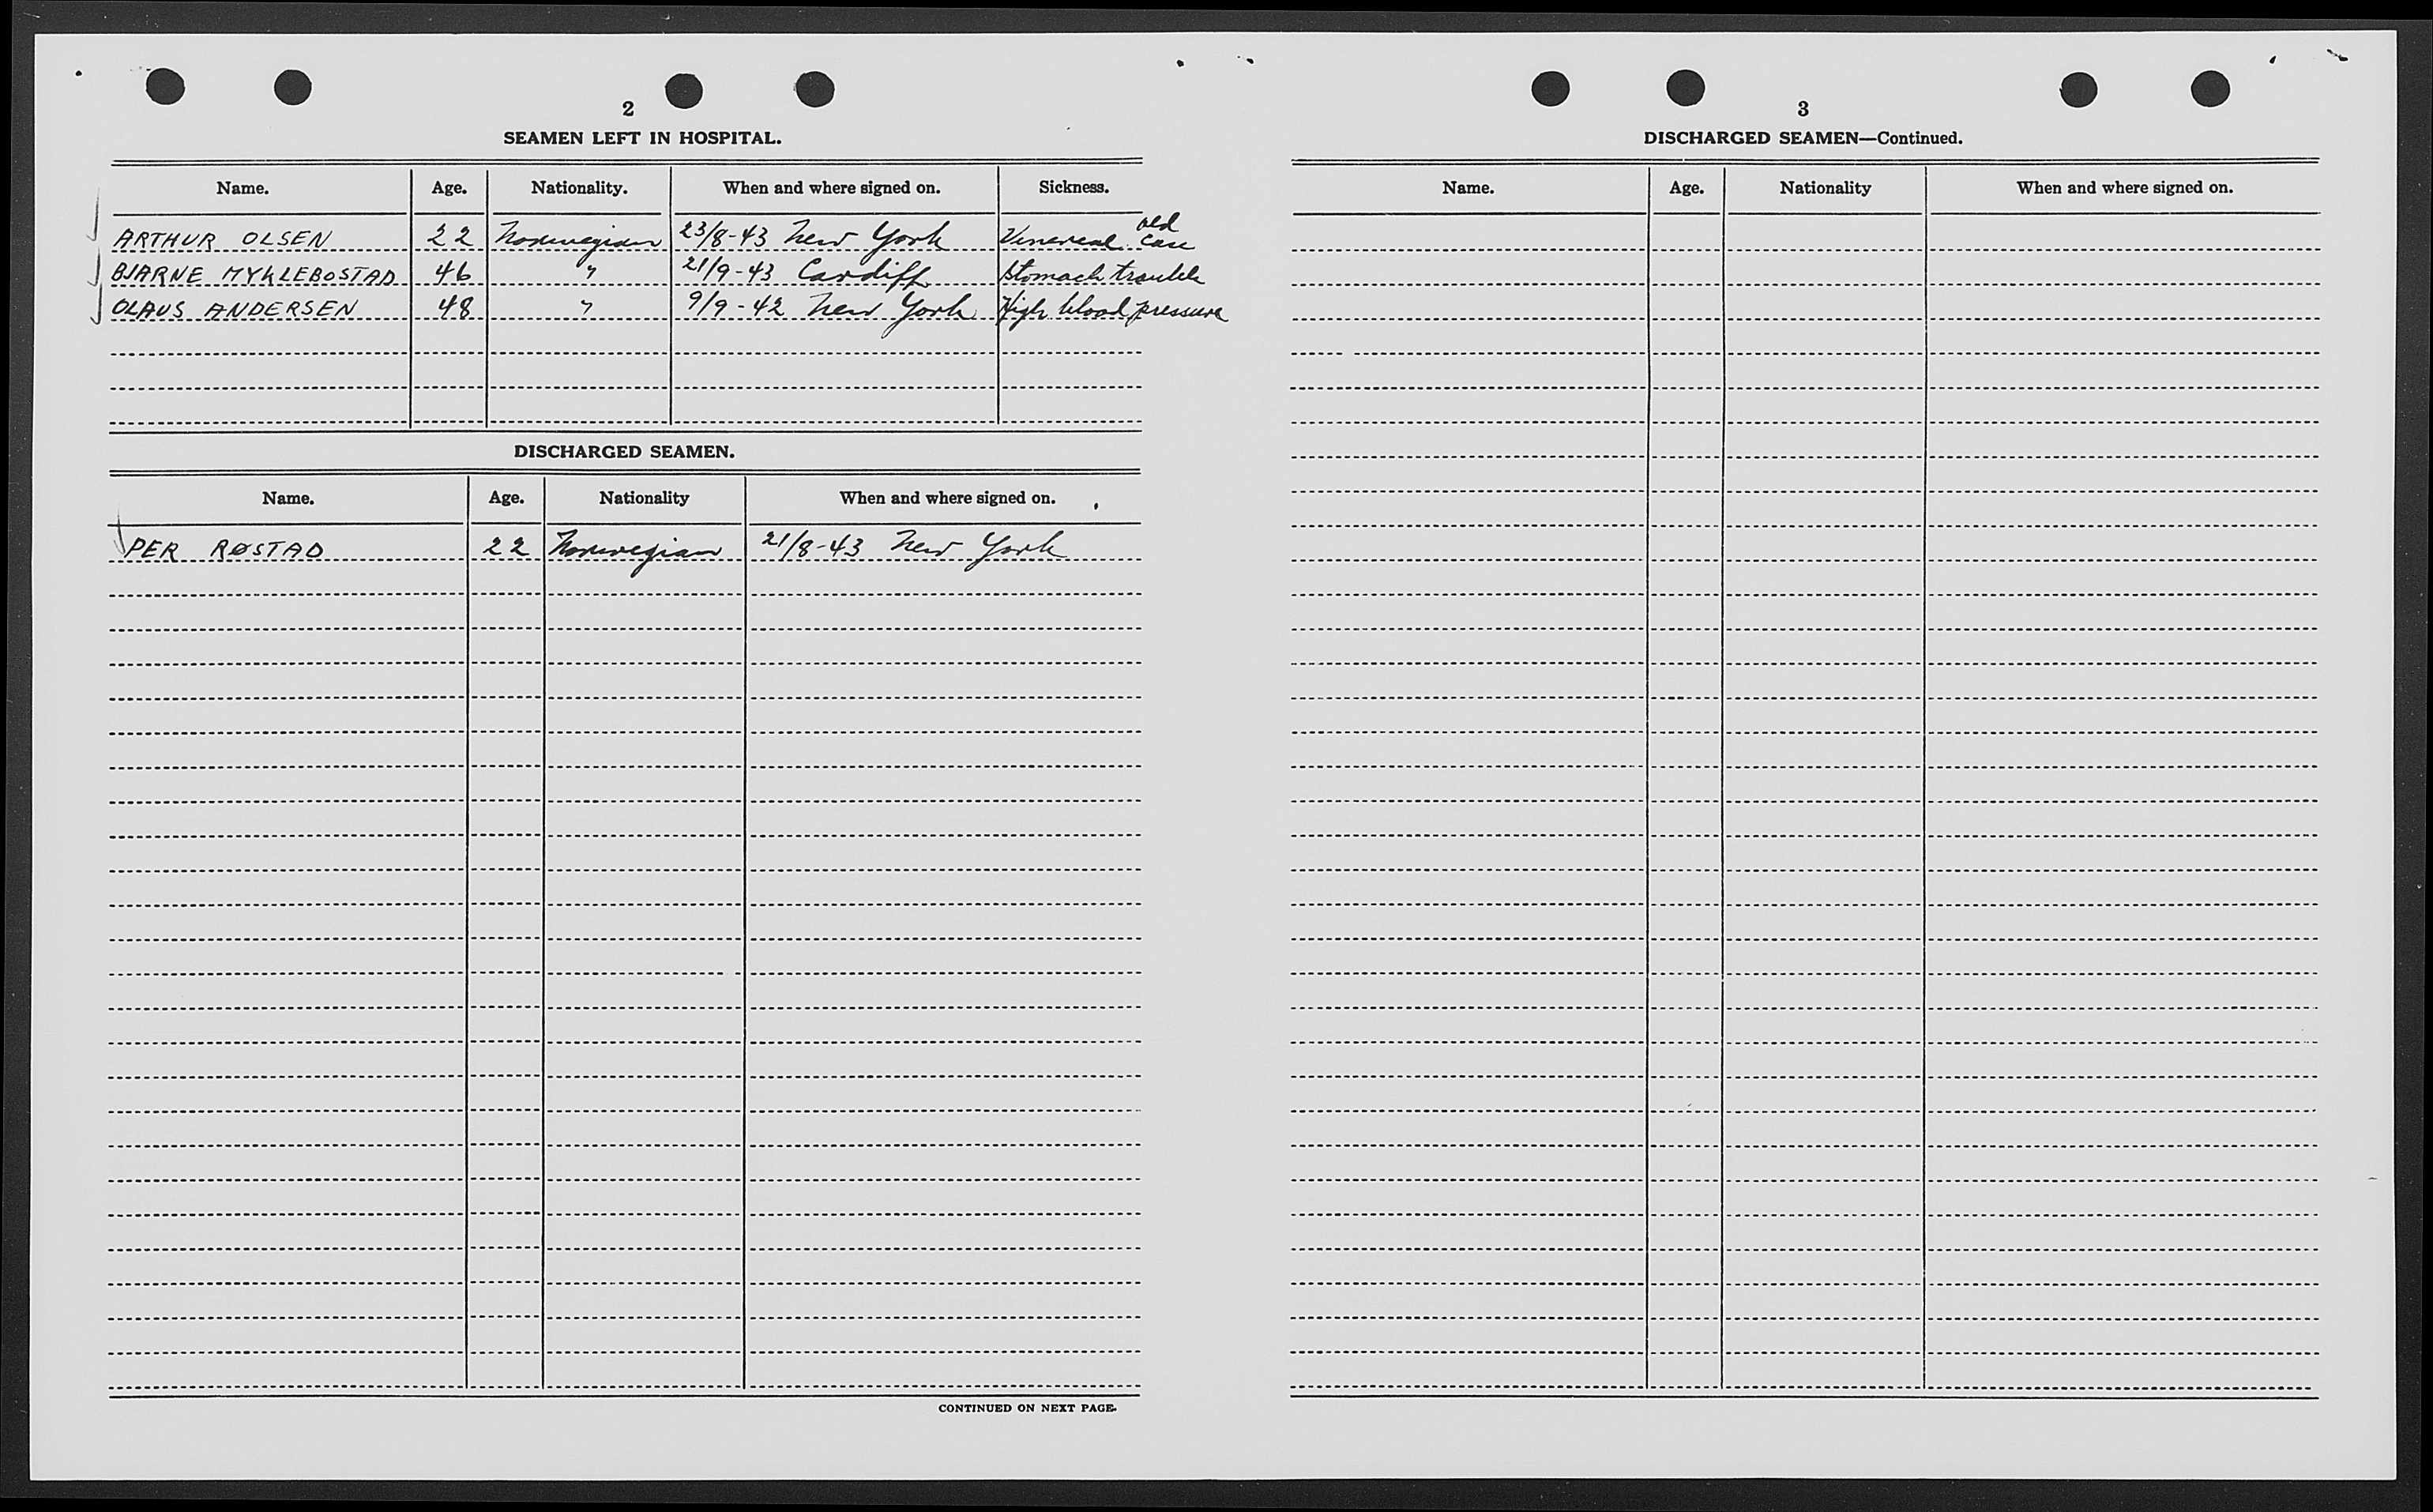 2
SEAMEN LEFT IN HOSPITAL.
Name. Age. Nationality. When and where signed on. Sickness.
ARTHUR OLSEN 22 Norwegian 23/8-43 New York Venereal old case
BJARNE MYKLEBOSTAD 46 " 21/9-43 Cardiff Stomach trouble
OLAUS ANDERSEN 48 " 9/9-42 New York High blood pressure
DISCHARGED SEAMEN.
Name. Age. Nationality When and where signed on.
PER RØSTAD 22 Norwegian 21/8-43 New York
CONTINUED ON NEXT PAGE.
3
DISCHARGED SEAMEN—Continued.
Name. Age. Nationality When and where signed on.